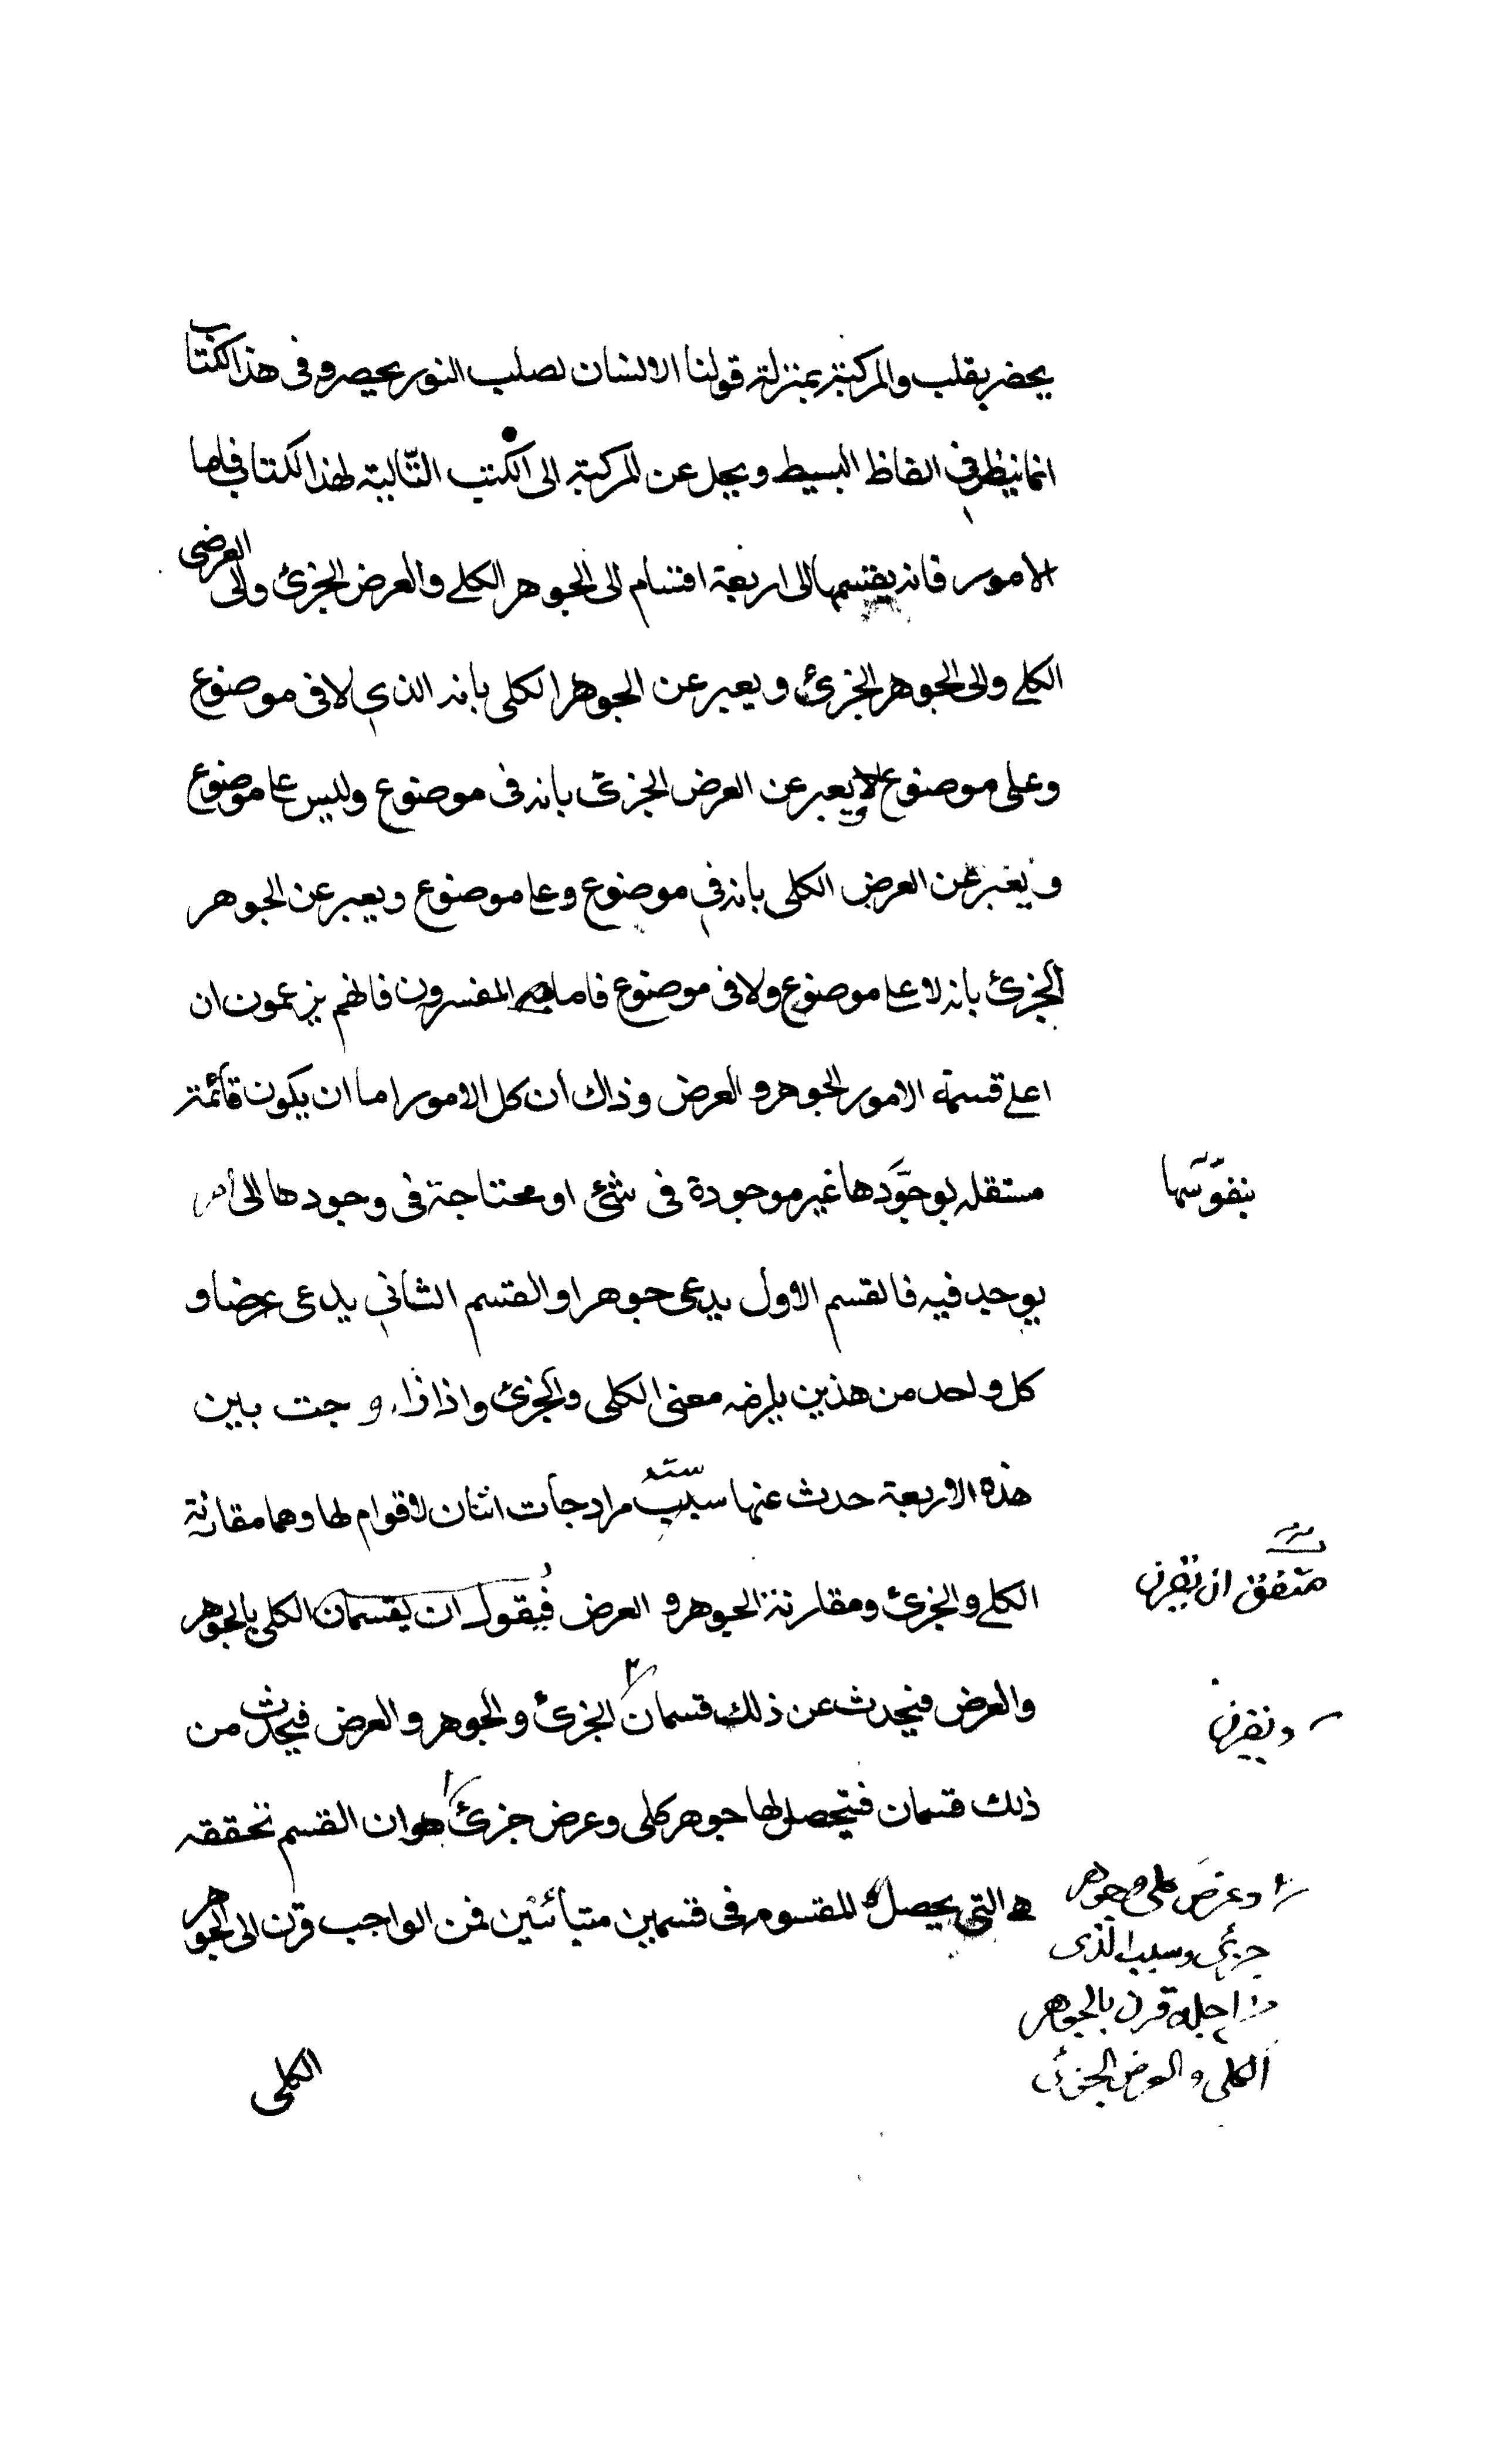 يحضر بقلب والمركبة بمنزلة قولنا الانسان لصلب النور يحصر وفى هذا الكتاب
انما ينظر فى الفاظ البسيط ويحل عن المركبة الى الكتب التالية لهذا الكتاب فاما
الامور فانه يقسمها الى اربعة اقسام الى الجوهر الكلى والعرض الجزئ والى العرضى
الكلى والى الجوهر الجزئ ويعبر عن الجوهر الكلى بانه الذى لا فى موضوع
وعلى موضوع ويعبر عن العرض الجزئ بانه فى موضوع وليس على موضوع
ويعبر عن العرض الكلى بانه فى موضوع وعلى موضوع ويعبر عن الجوهر
الجزئ بانه لا على موضوع ولا فى موضوع فاما المفسرون فانهم يزعمون ان
اعلى قسمة الامور الجوهر والعرض وذاك ان كل الامور اما ان يكون قائمة
بنفوسها
مستقله بوجودها غير موجودة فى شئ او محتاجة فى وجودها الى امر
يوجد فيه فالقسم الاول يدعى جوهرا والقسم الثانى يدعى عرضا و
كل واحد من هذين يلزمه معنى الكلى والجزئ واذا ازدوجت بين
هذه الاربعة حدث عنها ستة مزدوجات اثنان لا قوام لها وهما مقارنة
الكلى والجزئ ومقارنة الجوهر والعرض فيقول ان يقسمان الكلى بالجوهر
متفق ان نقرن
والعرض فيحدث عن ذلك قسمان الجزئ والجوهر والعرض فيحدث من
ونقرن
ذلك قسمان فيتحصل لها جوهر كلى وعرض جزئ هو ان القسم تحققه
هى التى يحصل المقسوم فى قسمين متبائنين فمن الواجب قرن الى الجوهر
وعرض كلى وجوهر
جزئى وسبب الذى
من اجله قرن بالجوهر
الكلى والعرض الجزئى
الكلى